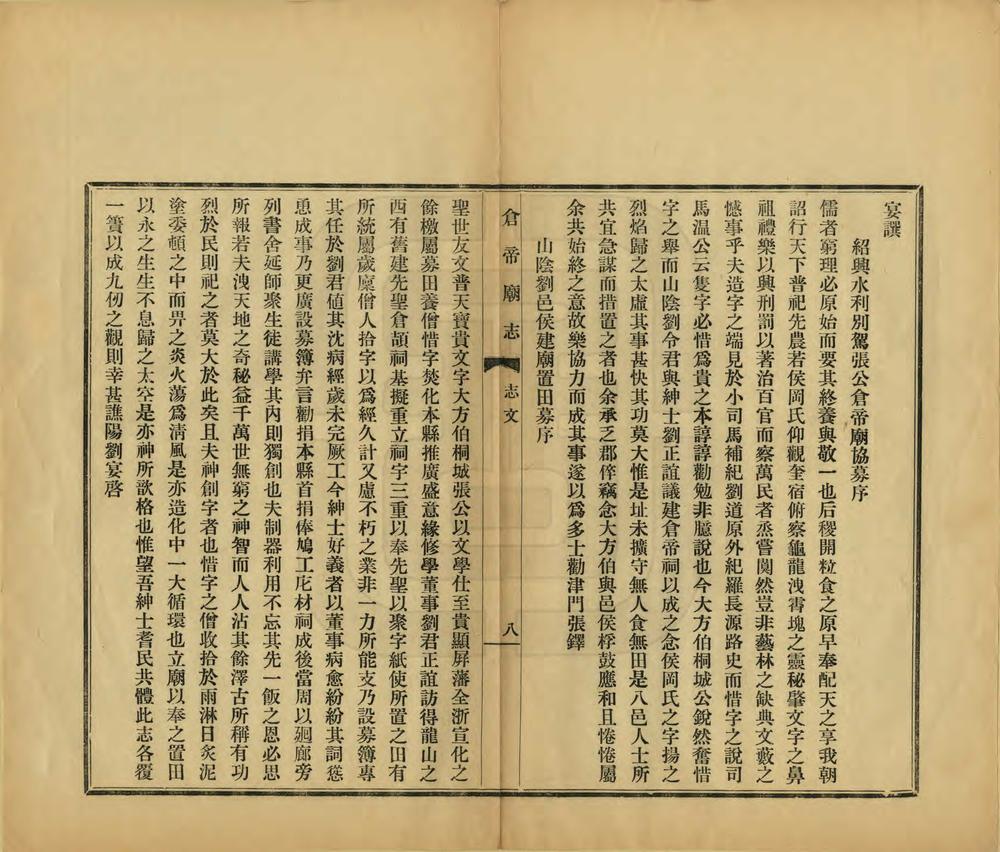 宴譔
紹興水利別駕張公倉帝廟協募序
儒者窮理必原始而要其終養與敬一也后稷開粒食之原早奉配天之享我朝
詔行天下普祀先農若侯岡氏仰觀奎宿俯察龜龍洩霄塊之靈秘肇文字之鼻
祖禮樂以興刑罰以著治百官而察萬民者烝嘗闃然豈非藝林之缺典文藪之
憾事乎夫造字之端見於小司馬補紀劉道原外紀羅長源路史而惜字之說司
馬温公云隻字必惜爲貴之本諄諄勸勉非臆說也今大方伯桐城公銳然奮惜
字之舉而山陰劉令君與紳士劉正誼議建倉帝祠以成之念侯岡氏之字揚之
烈焰歸之太虛其事甚快其功莫大惟是址未擴守無人食無田是八邑人士所
共宜急謀而措置之者也余承乏郡倅竊念大方伯與邑侯桴鼓應和且惓惓屬
余共始終之意故樂協力而成其事遂以爲多士勸津門張鐸
山陰劉邑侯建廟置田募序
倉帝廟志
志文
八
聖世友文普天寶貴文字大方伯桐城張公以文學仕至貴顯屏藩全浙宣化之
餘檄屬募田養僧惜字焚化本縣推廣盛意緣修學董事劉君正誼訪得龍山之
西有舊建先聖倉頡祠基擬重立祠宇三重以奉先聖以聚字紙使所置之田有
所統屬歲廩僧人拾字以爲經久計又慮不朽之業非一力所能支乃設募簿專
其任於劉君値其沈病經歲未完厥工今紳士好義者以董事病愈紛紛其詞慫
恿成事乃更廣設募簿弁言勸捐本縣首捐俸鳩工庀材祠成後當周以廻廊旁
列書舍延師聚生徒講學其內則獨創也夫制器利用不忘其先一飯之恩必思
所報若夫洩天地之奇秘益千萬世無窮之神智而人人沾其餘澤古所稱有功
烈於民則祀之者莫大於此矣且夫神創字者也惜字之僧收拾於雨淋日炙泥
塗委頓之中而畀之炎火蕩爲清風是亦造化中一大循環也立廟以奉之置田
以永之生生不息歸之太空是亦神所歆格也惟望吾紳士耆民共體此志各覆
一簣以成九仞之觀則幸甚譙陽劉宴啓